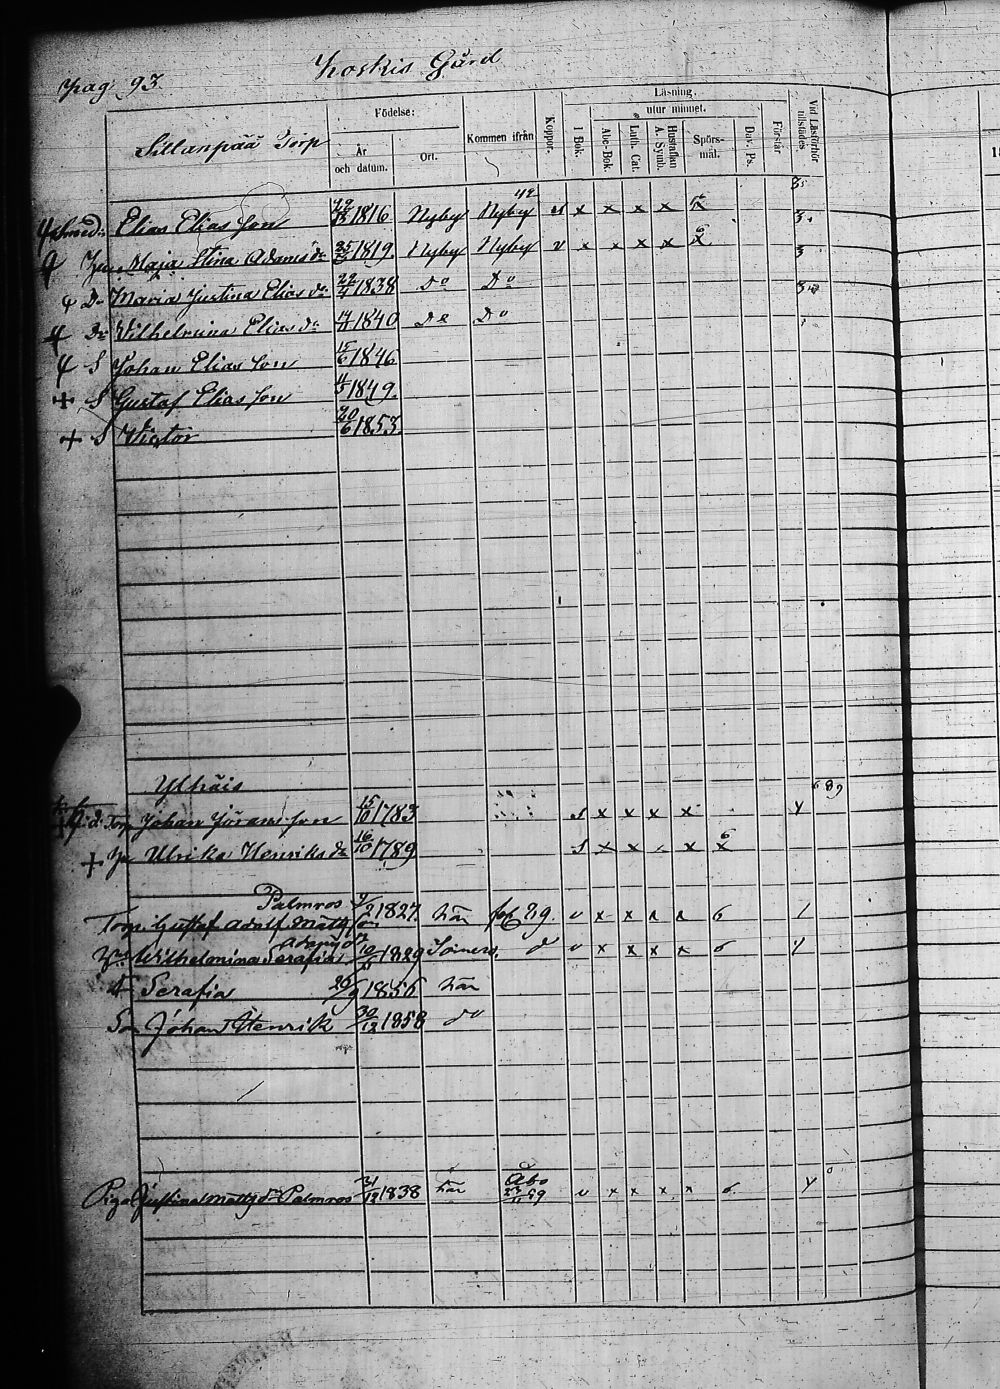 pag 93 Koskis Gård
Sillanpää Torp
Födelse:
År och datum.
Ort.
Kommen ifrån
Koppor.
Läsning.
I Bok.
utur minnet.
Abc-Bok.
Luth. Cat.
Hustaflan A. Symb.
Spörs-mål.
Dav. Ps.
Förstår
Vid Läsförhör tillstädes
42
Elias Elias son 1816 Nyby Nyby s x x x x x 3
Maja Stina Adams dr 1819. Nyby Nyby v x x x x x 3
Dr Maria Justina Elias dr 22/4 1838 Do Do
Dr Vilhelmina Elias dr 1840 Do Do
S Johan Elias son 15/6 1846
S Gustaf Elias son 1849.
S Victor 20/6 1853.
Ylhäis
Torp Johan Jörans son 15/10 1783 s x x x x
Ulrika Henriks dr 16/10 1789 s x x x x
Palmros
Torp. Gustaf Adolf Matts son 1827. här v x x 6 1
Adams dr
Wilhelmina Serafia 1829 Somero. v x x x x 6
Serafia 1856 här
Son Johan Henrik 30/12 1858 do
Åbo
Piga Justina Matts dr Palmros 31/12 1838 här 59 v x x x x 6